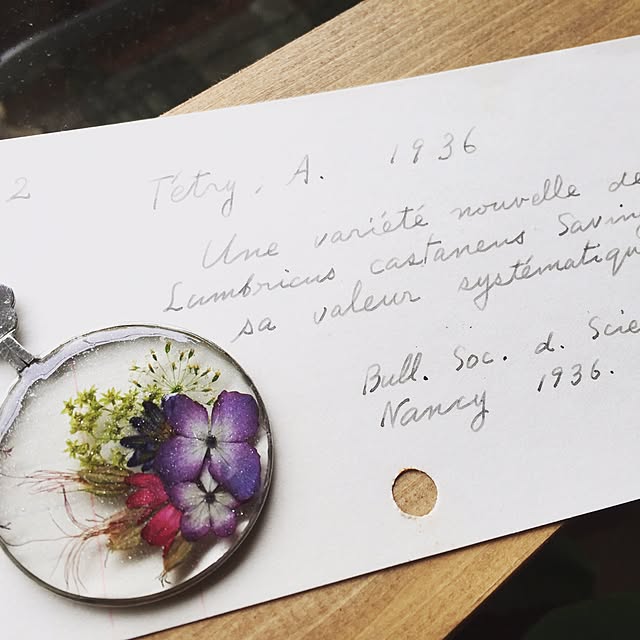 2 Tétry, A. 1936
Une variété nouvelle de
Lumbricus castaneus Savin
sa valeur systématiqu
Bull. Soc. d. Scie
Nancy 1936.